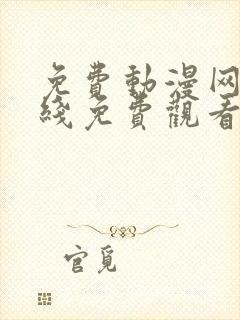 免費動漫网
綫免費觀看
官覓